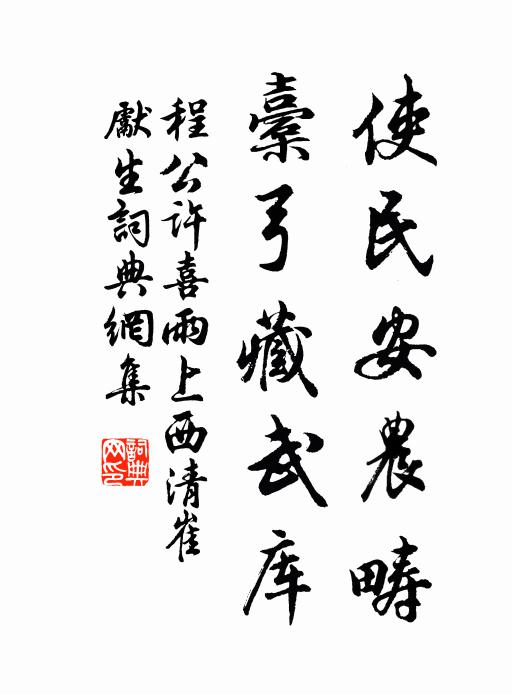 使民安農疇
櫜弓藏武库
程公许喜雨上西清崔
獻生詞典網集
詞典网印